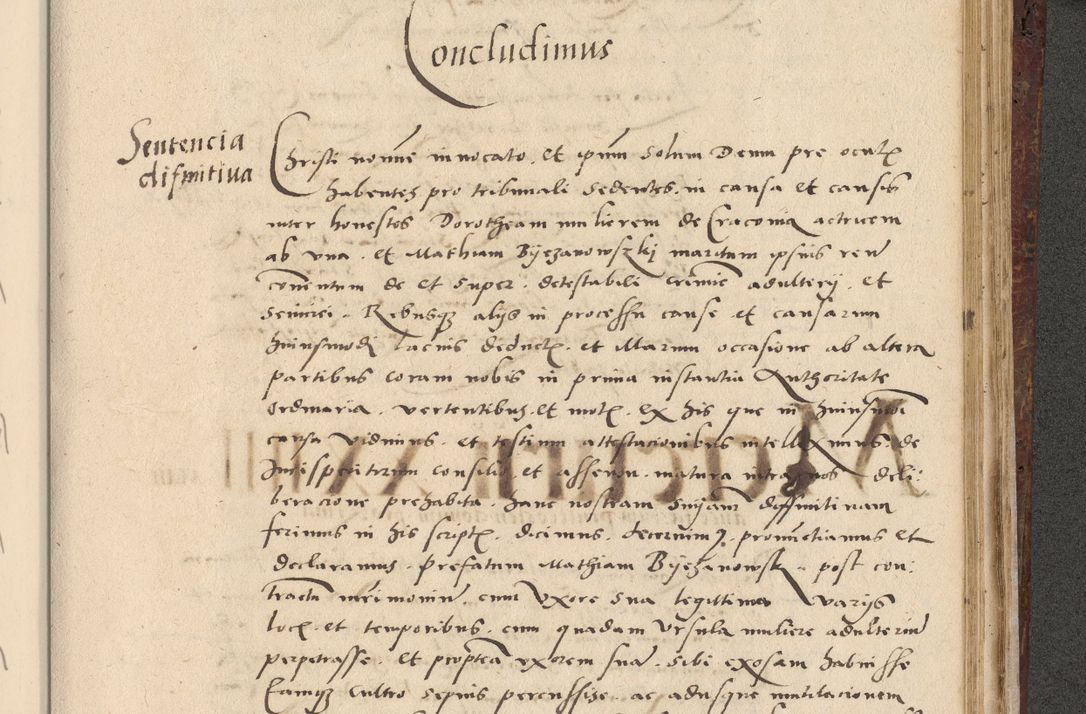 Concludimus
Sentencia
difinitiua
Christi nomine inuocato, et ipsum Solum Deum pre oculis
habentes pro tribunali Sedentes, in causa et causis
inter honestos Dorotheam mulierem de Cracouia actricem
ab vna, et Mathiam Byezanowszkij maritum ipsius reum
conuentum de et super detestabili crimine adulterij, et
Rebusque alijs in processu cause et causarum
huiusmodi lacius deductis, et illarum occasione ab altera
partibus coram nobis in prima instantia Authoritate
ordinaria, vertentibus, et motis, ex his que in huiusmodi
causa vidimus, et testium attestacionibus intelleximus, de
Jurisperitorum consilio, et assensu, matura inter nos deli:
beracione prehabita, hanc nostram sententiam diffinitiuam
ferimus in his scriptis, dicimus, decernimus, pronunctiamus et
declaramus, prefatum Mathiam Byezanowsk post con:
tractum matrimonium, cum vxore sua legittima varijs
locis et temporibus, cum quadam Vrsula muliere adulterium
perpetrasse, et propterea vxorem suam, sibi exosam habuisse
Eamque cultro sepius percussisse, ac adusque mutilacionem